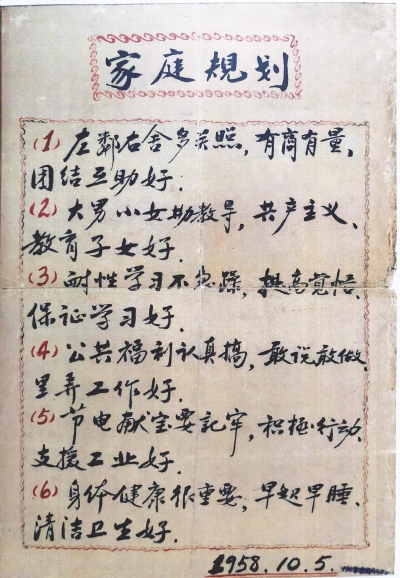 家庭規划
(1) 左鄰右舍多关照，有商有量，
团结互助好．
(2) 大男小女勤教导，共产主义．
教育子女好．
(3) 耐性学习不急躁，提高覚悟．
保证学习好．
(4) 公共福利认真搞，敢说敢做．
里弄工作好．
(5) 节电献宝要記牢，积极行动．
支援工业好．
(6) 身体健康很重要，早起早睡．
清洁卫生好．
1958.10.5.